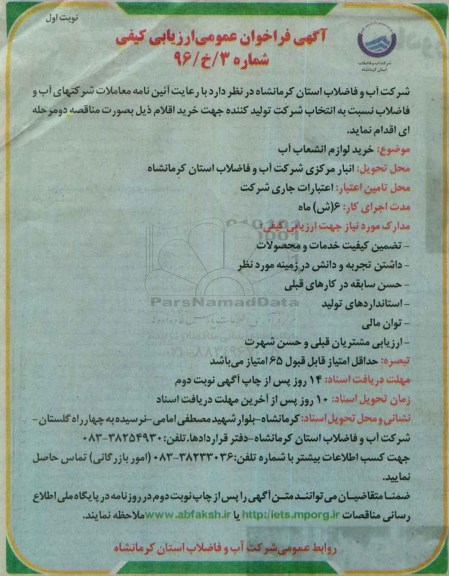 نوبت اول
آگهی فراخوان عمومی ارزیابی کیفی
شماره ۳/خ/۹۶
شرکت آب و فاضلاب
استان کرمانشاه
شرکت آب و فاضلاب استان کرمانشاه در نظر دارد با رعایت آئین نامه معاملات شرکتهای آب و
فاضلاب نسبت به انتخاب شرکت تولید کننده جهت خرید اقلام ذیل بصورت مناقصه دومرحله
ای اقدام نماید.
موضوع: خرید لوازم انشعاب آب
محل تحویل: انبار مرکزی شرکت آب و فاضلاب استان کرمانشاه
محل تامین اعتبار: اعتبارات جاری شرکت
مدت اجرای کار: ۶(ش) ماه
مدارک مورد نیاز جهت ارزیابی کیفی:
- تضمین کیفیت خدمات و محصولات
- داشتن تجربه و دانش در زمینه مورد نظر
- حسن سابقه در کارهای قبلی
- استانداردهای تولید
ParsNamadData
- توان مالی
- ارزیابی مشتریان قبلی و حسن شهرت
تبصره: حداقل امتیاز قابل قبول ۶۵ امتیاز می‌باشد
مهلت دریافت اسناد: ۱۴ روز پس از چاپ آگهی نوبت دوم
زمان تحویل اسناد: ۱۰ روز پس از آخرین مهلت دریافت اسناد
نشانی و محل تحویل اسناد: کرمانشاه-بلوار شهید مصطفی امامی-نرسیده به چهارراه گلستان-
شرکت آب و فاضلاب استان کرمانشاه-دفتر قراردادها.تلفن:۳۸۲۵۴۹۳۰-۰۸۳
جهت کسب اطلاعات بیشتر با شماره تلفن:۳۸۲۳۳۰۳۶-۰۸۳ (امور بازرگانی) تماس حاصل
نمایید.
ضمنا متقاضیان می‌توانند متن آگهی را پس از چاپ نوبت دوم در روزنامه در پایگاه ملی اطلاع
رسانی مناقصات http://iets.mporg.ir یا www.abfaksh.ir ملاحظه نمایند.
روابط عمومی شرکت آب و فاضلاب استان کرمانشاه